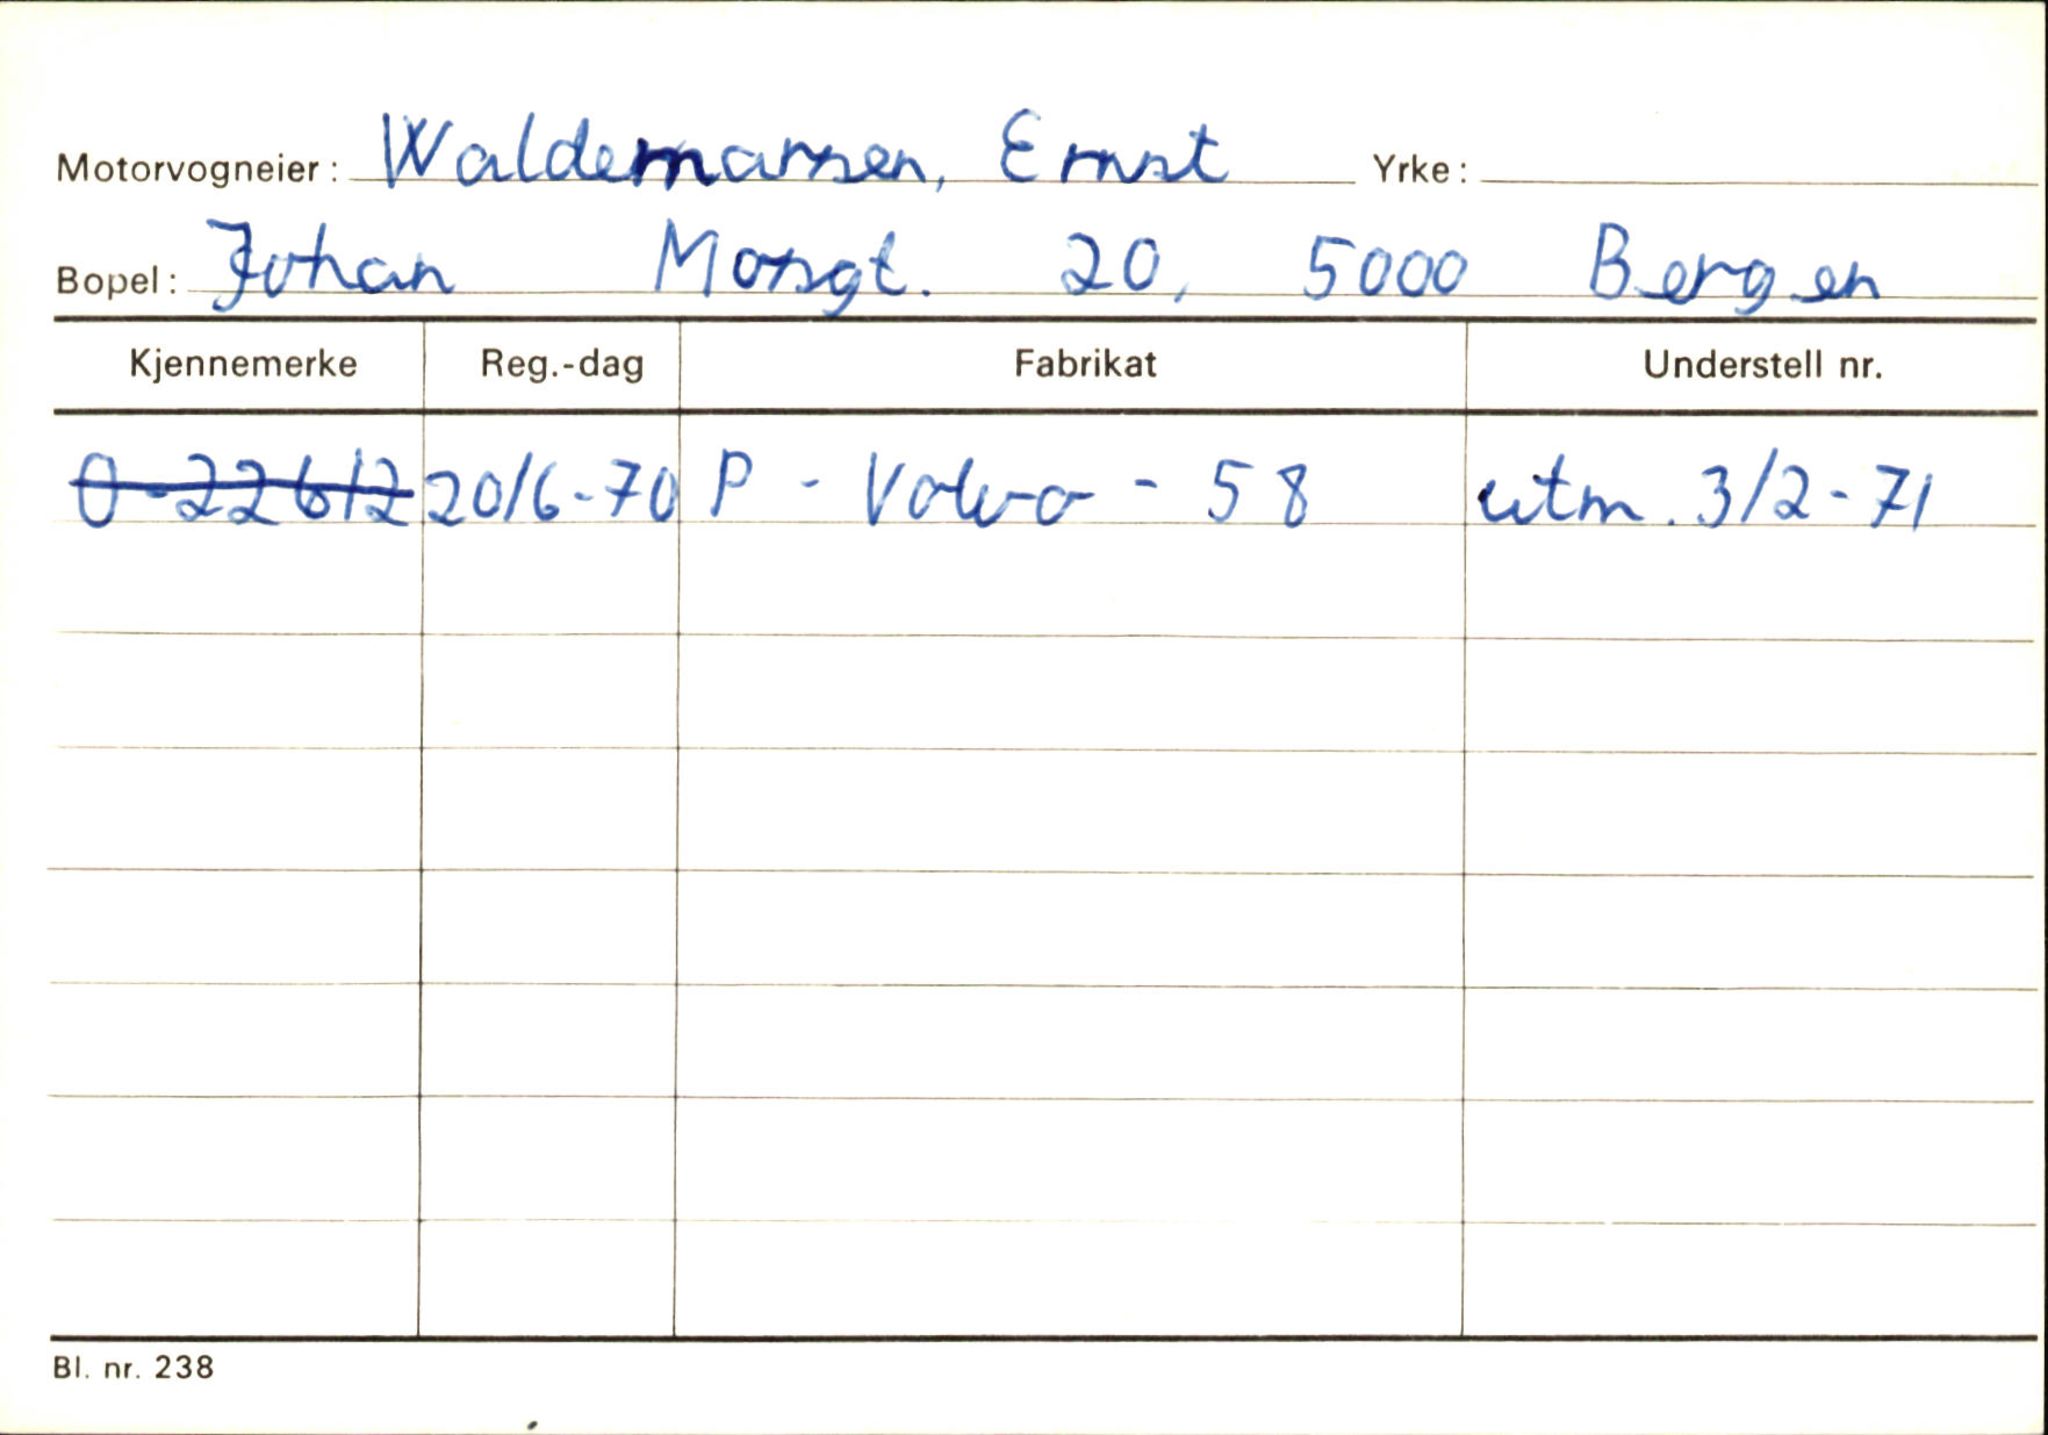 Motorvogneier: Waldemarsen, Ernst Yrke:
Bopel: Johan Morsgt. 20, 5000 Bergen
Kjennemerke Reg.-dag Fabrikat Understell nr.
O-22612 20/6-70 P - Volvo - 58 utm. 3/2-71
Bl. nr. 238